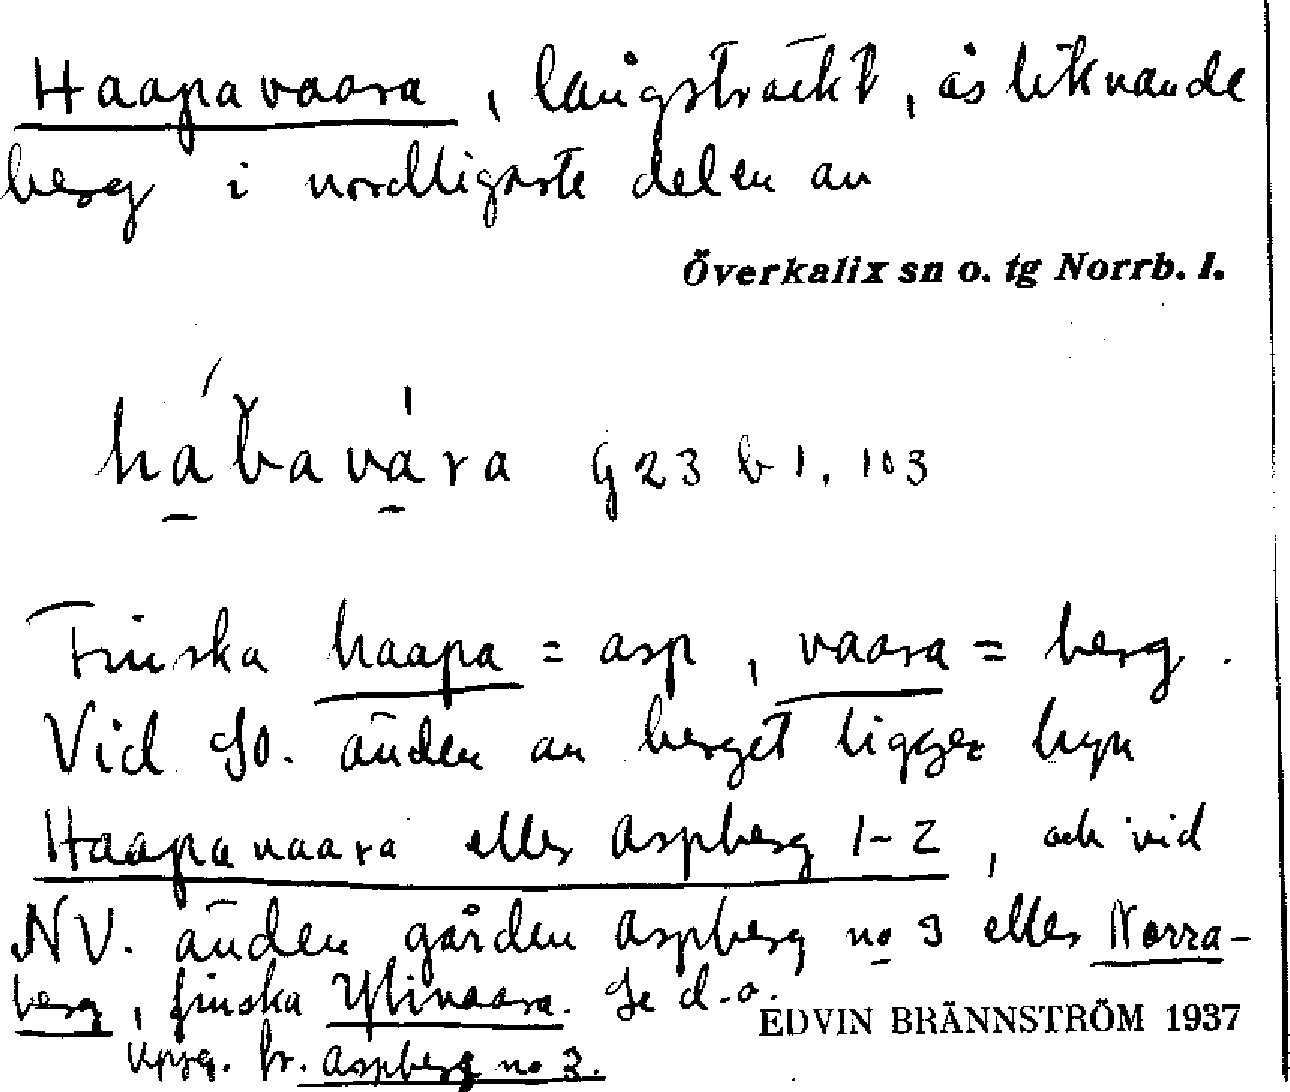 Haapavaara, långsträckt, åsliknande
berg i nordligaste delen av
Överkalix sn o. tg Norrb. l.
hábavára G 23 b 1, 103
Finska haapa = asp, vaara = berg.
Vid SO. änden av berget ligger byn
Haapavaara eller Aspberg 1-2, och vid
NV. änden gården Aspberg no 3 eller Norra-
berg, finska Ylivaara. Se d.o.
EDVIN BRÄNNSTRÖM 1937
Uppg. fr. Aspberg no 3.